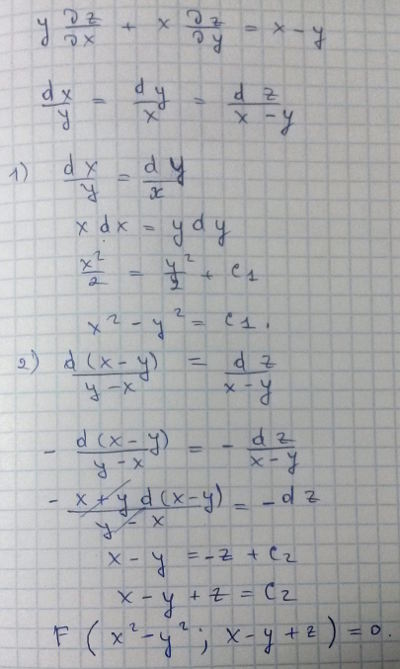 y ∂z/∂x + x ∂z/∂y = x - y
dx/y = dy/x = dz/(x - y)
1) dx/y = dy/x
x dx = y dy
x²/2 = y²/2 + c1
x² - y² = c1.
2) d(x - y)/(y - x) = dz/(x - y)
- d(x - y)/(y - x) = - dz/(x - y)
- (x + y d(x - y))/(y - x) = - dz
x - y = -z + c2
x - y + z = c2
F (x² - y² ; x - y + z) = 0.